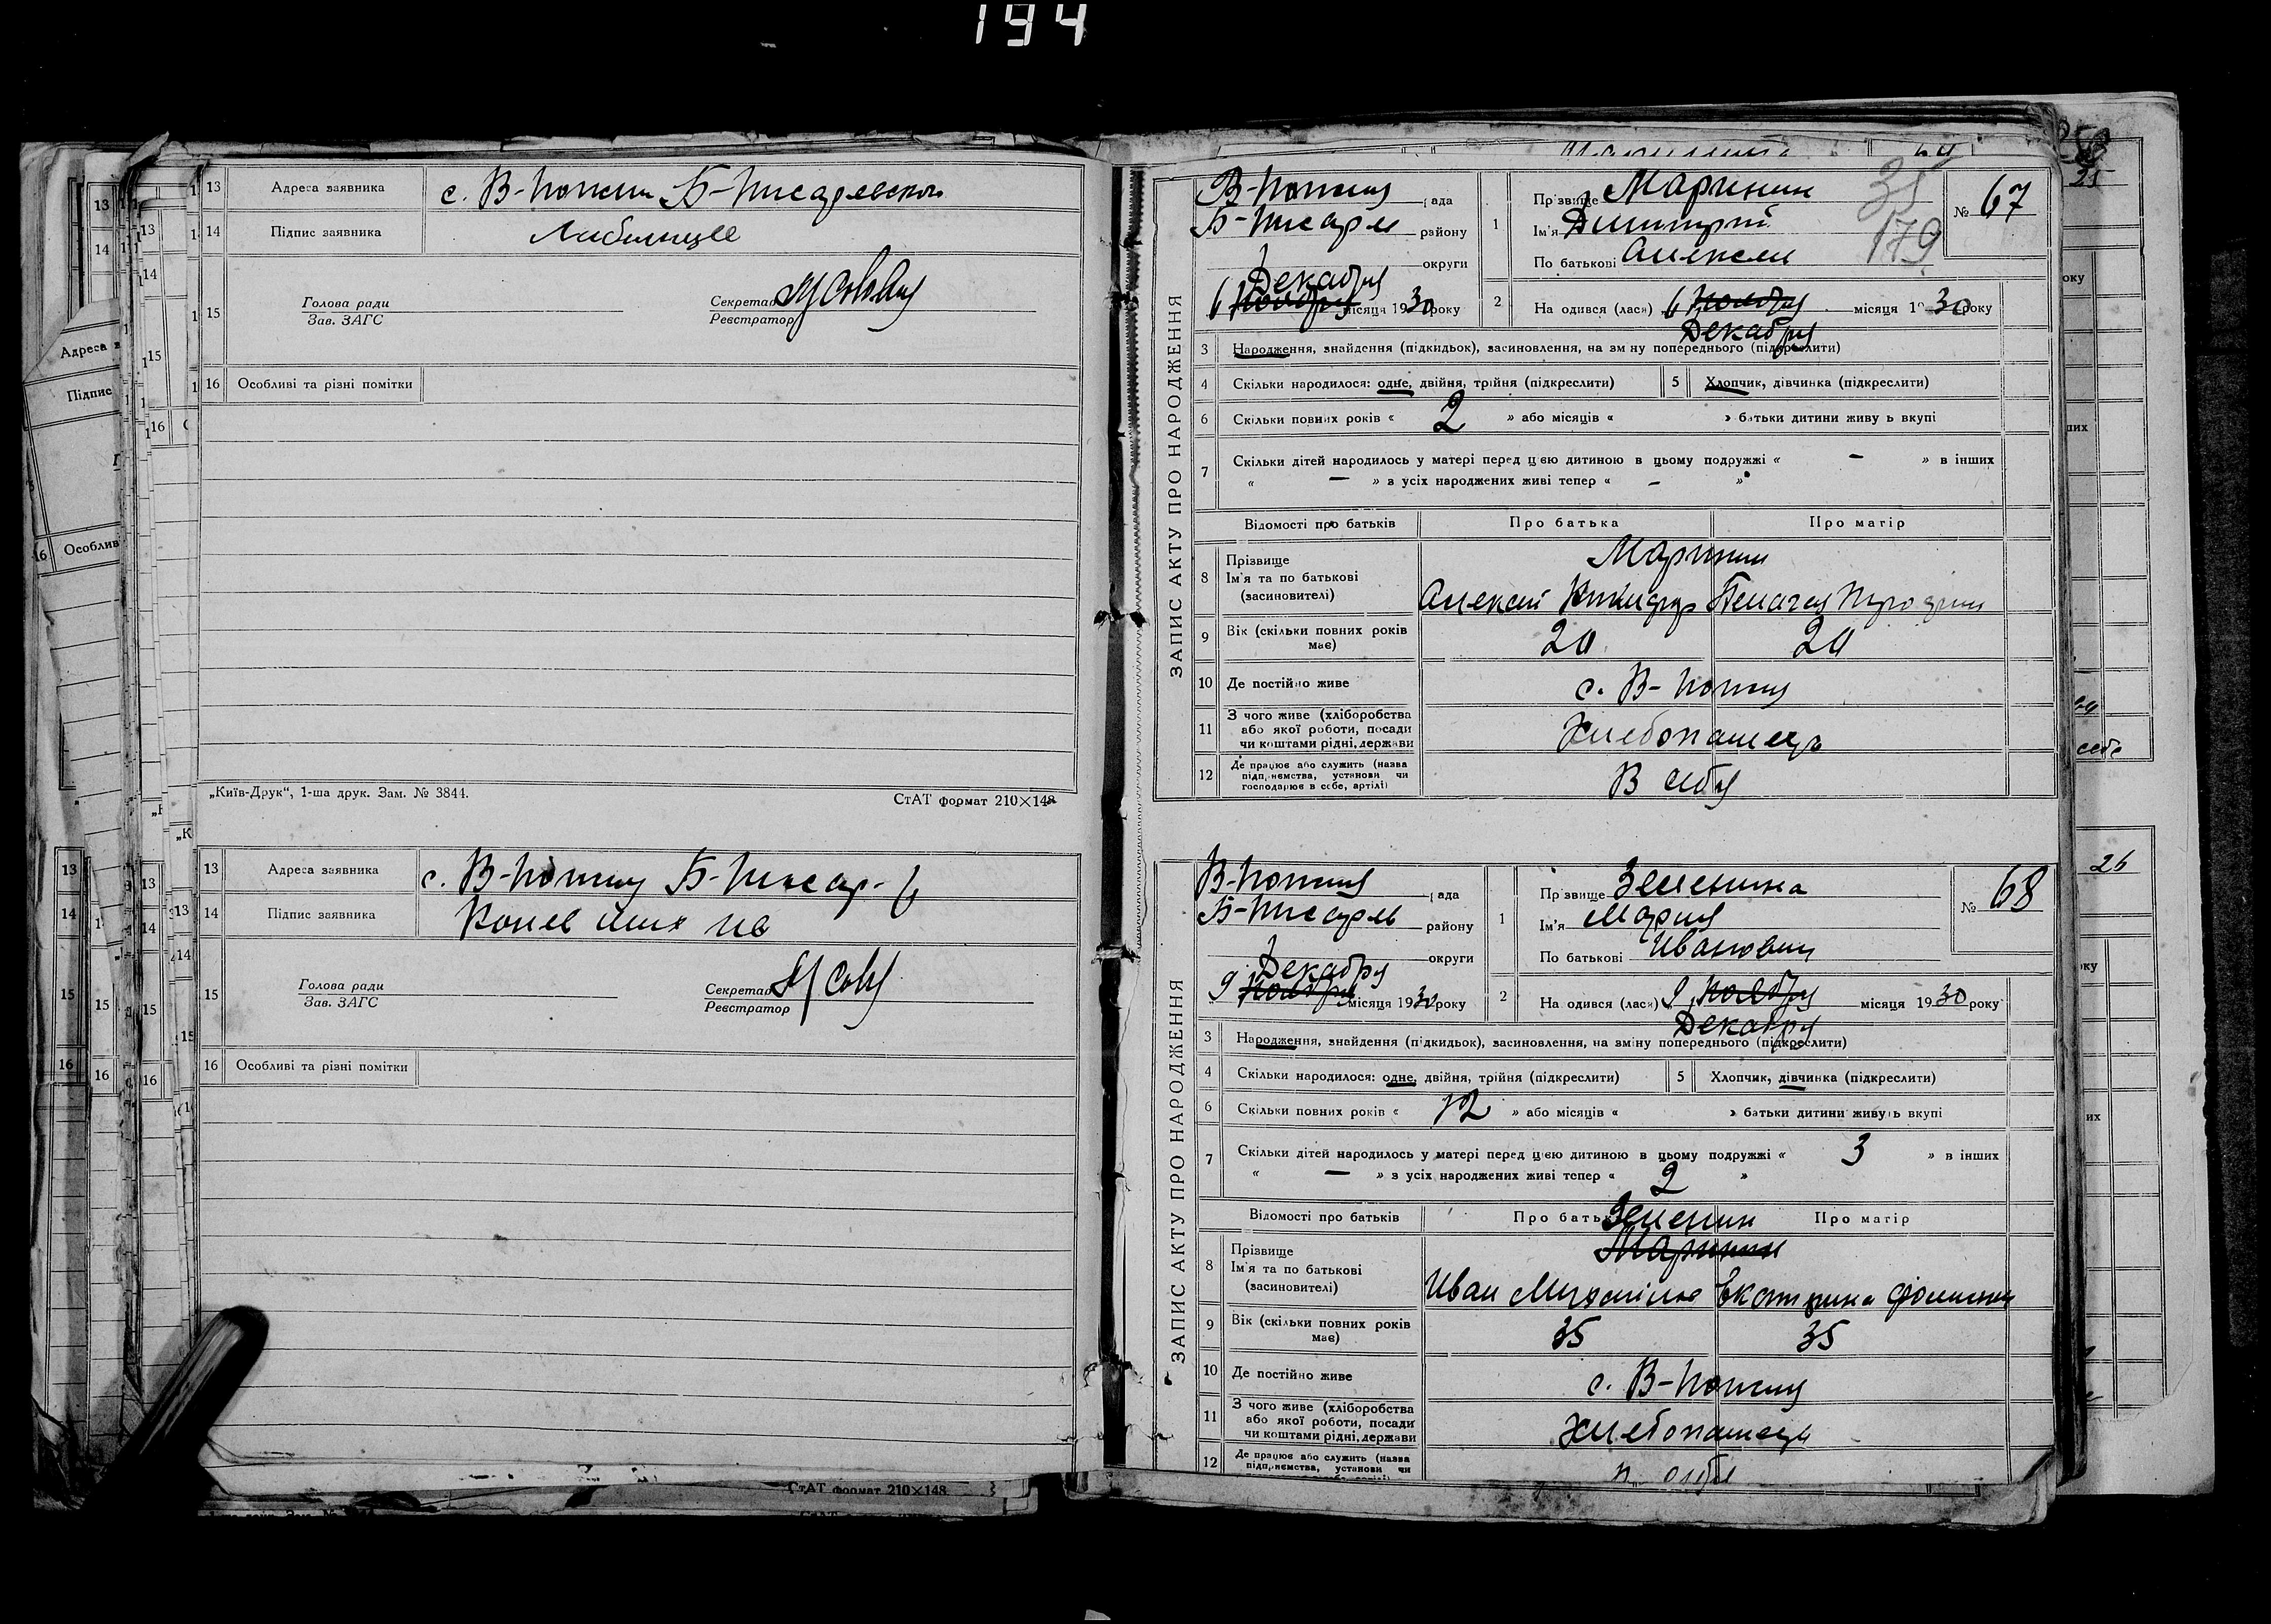 194
13 Адреса заявника с. В-Пожня Б-Писаревского
14 Підпис заявника
15 Голова ради
Зав. ЗАГС
Секретар
Реєстратор
16 Особливі та різні помітки
„Київ-Друк“, 1-ша друк. Зам. № 3844.
СтАТ формат 210×148
13 Адреса заявника с. В-Пожня Б-Писар.
14 Підпис заявника
15 Голова ради
Зав. ЗАГС
Секретар
Реєстратор
16 Особливі та різні помітки
СтАТ формат 210×148
ЗАПИС АКТУ ПРО НАРОДЖЕННЯ
В-Пожня рада
Б-Писарев району
округи
Декабря
6 Ноября місяця 1930 року
1 Прізвище Маринин
Ім'я Димитрий
По батькові Алексеев
35
179
№ 67
2 На одився (лася) 6 Ноября місяця 1930 року
Декабря
3 Народження, знайдення (підкидьок), засиновлення, на зміну попереднього (підкреслити)
4 Скільки народилося: одне, двійня, трійня (підкреслити)
5 Хлопчик, дівчинка (підкреслити)
6 Скільки повних років « 2 » або місяців « » батьки дитини живуть вкупі
7 Скільки дітей народилось у матері перед цією дитиною в цьому подружжі « – » в інших
« – » з усіх народжених живі тепер « – »
Відомості про батьків Про батька Про матір
8 Прізвище
Ім'я та по батькові
(засиновителі)
Маринин
Алексей Пелагея
9 Вік (скільки повних років має) 20 20
10 Де постійно живе с. В-Пожня
11 З чого живе (хліборобства або якої роботи, посади чи коштами рідні, держави Хлебопашец
12 Де працює або служить (назва підприємства, установи чи господарює в себе, артілі) В себя
ЗАПИС АКТУ ПРО НАРОДЖЕННЯ
В-Пожня рада
Б-Писарев району
округи
Декабря
9 Ноября місяця 1930 року
1 Прізвище Зеленина
Ім'я Мария
По батькові Ивановна
№ 68
2 На одився (лася) 9 Ноября місяця 1930 року
Декабря
3 Народження, знайдення (підкидьок), засиновлення, на зміну попереднього (підкреслити)
4 Скільки народилося: одне, двійня, трійня (підкреслити)
5 Хлопчик, дівчинка (підкреслити)
6 Скільки повних років « 12 » або місяців « » батьки дитини живуть вкупі
7 Скільки дітей народилось у матері перед цією дитиною в цьому подружжі « 3 » в інших
« – » з усіх народжених живі тепер « 2 »
Відомості про батьків Про батька Про матір
Зеленин
8 Прізвище
Ім'я та по батькові
(засиновителі)
Маринин
Иван Михайлов Екатерина
9 Вік (скільки повних років має) 35 35
10 Де постійно живе с. В-Пожня
11 З чого живе (хліборобства або якої роботи, посади чи коштами рідні, держави Хлебопашец
12 Де працює або служить (назва підприємства, установи чи